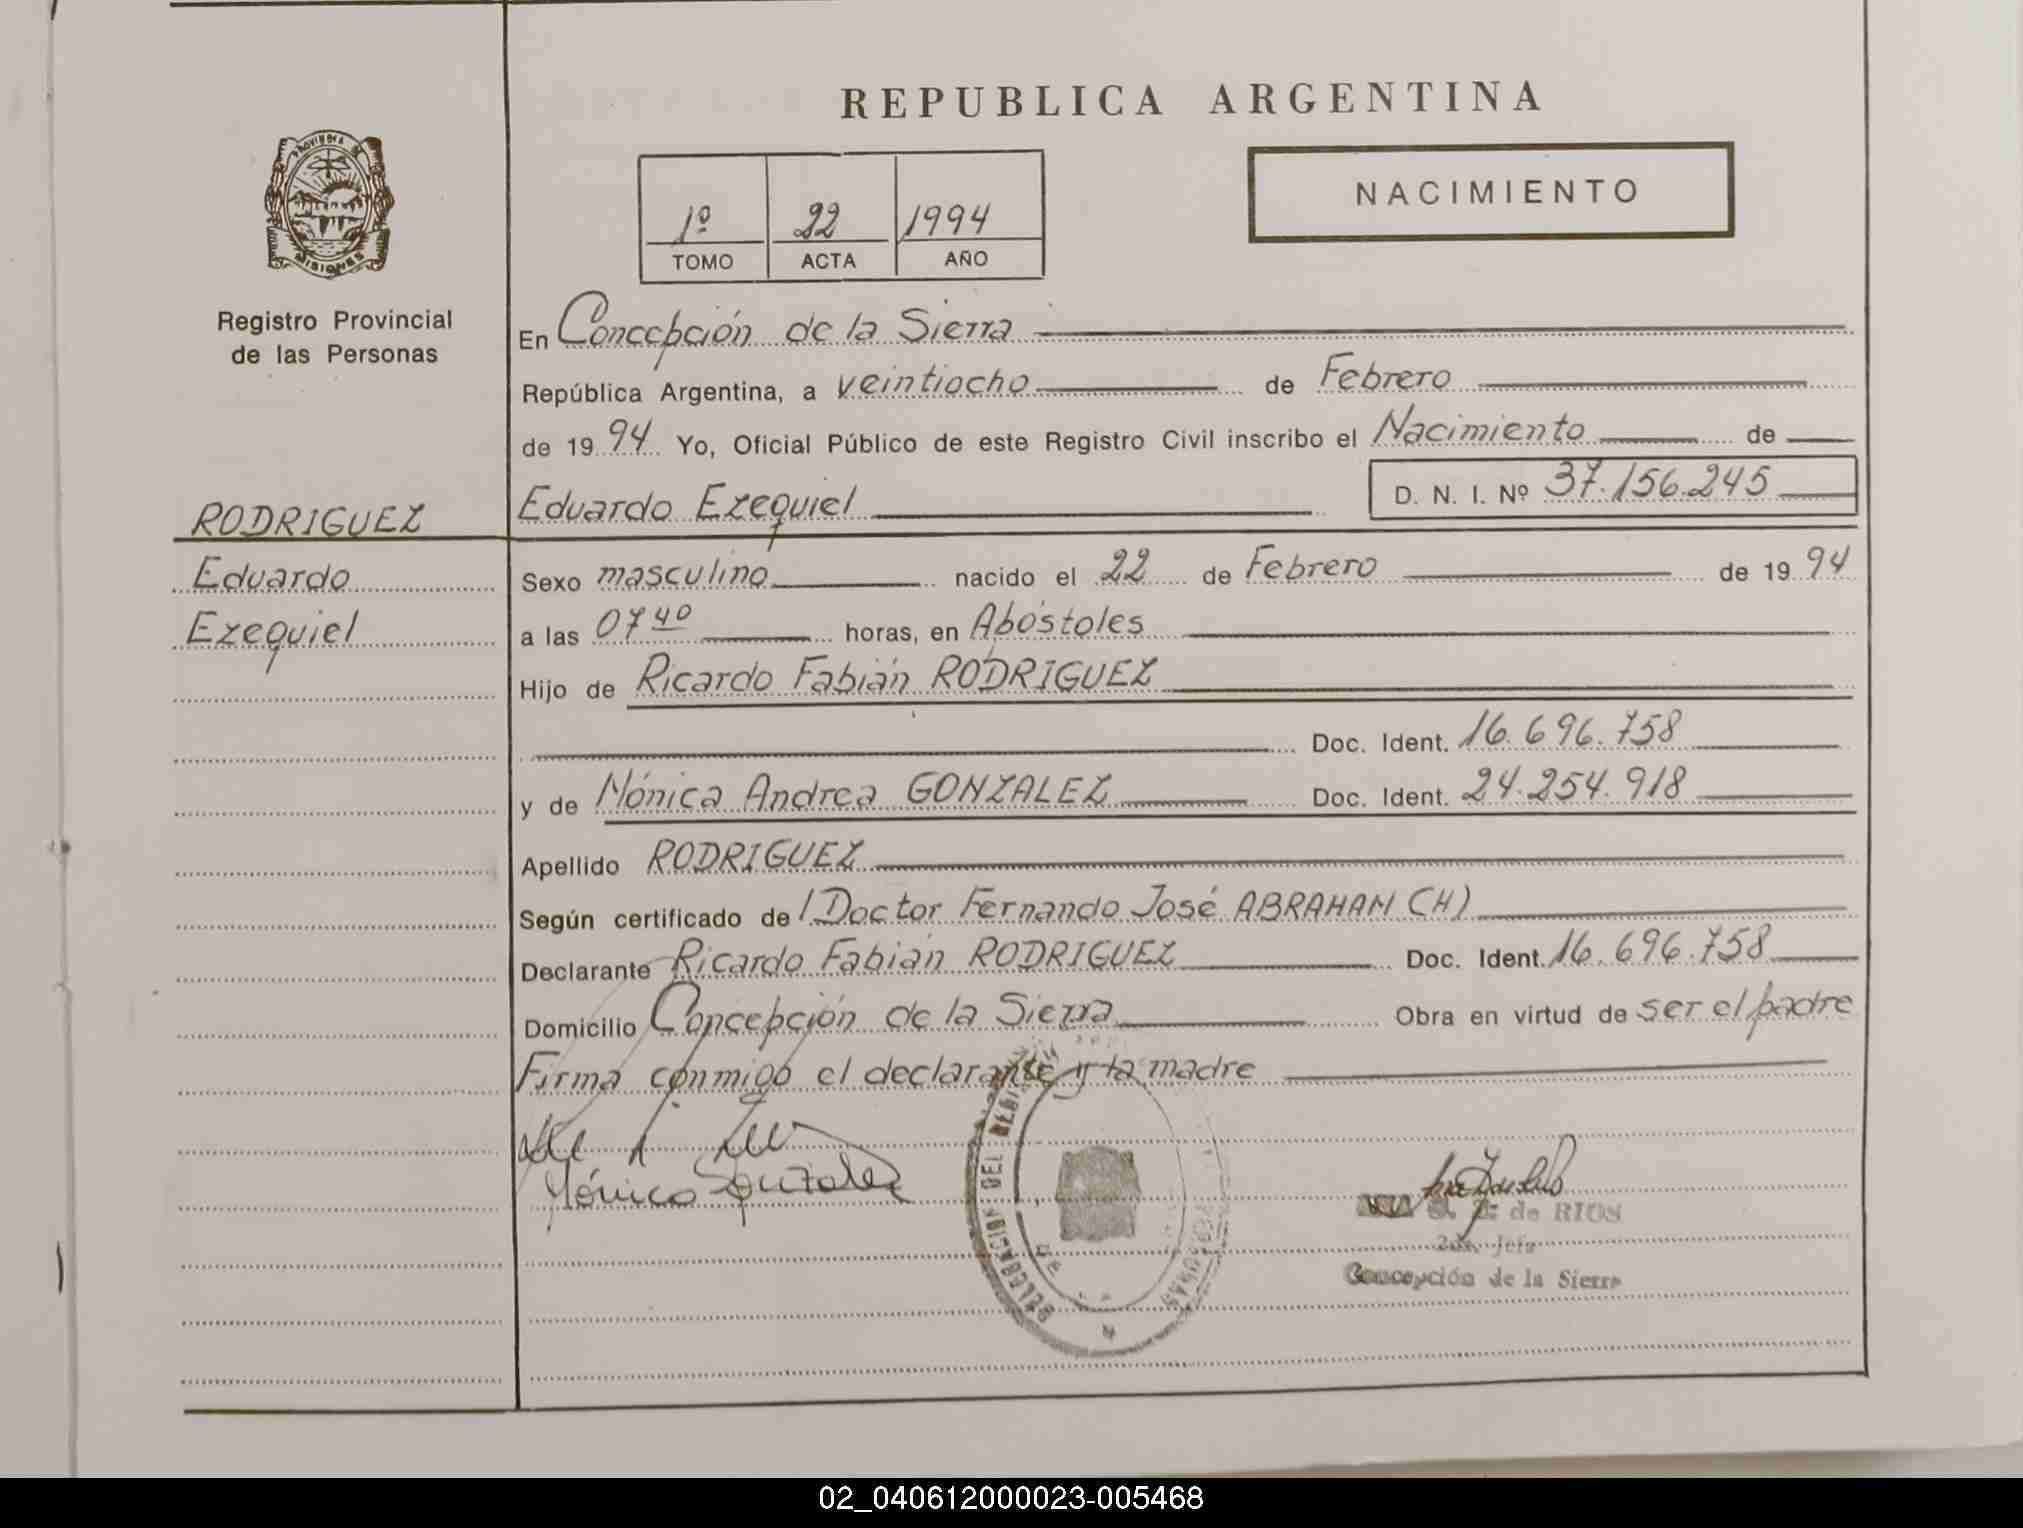 REPUBLICA ARGENTINA
PROVINCIA DE
MISIONES
Registro Provincial
de las Personas
1º 22 1994
TOMO ACTA AÑO
NACIMIENTO
En Concepción de la Sierra
República Argentina, a veintiocho de Febrero
de 1994 Yo, Oficial Público de este Registro Civil inscribo el Nacimiento de
RODRIGUEZ
Eduardo
Ezequiel
Eduardo Ezequiel D. N. I. Nº 37.156.245
Sexo masculino nacido el 22 de Febrero de 1994
a las 07 40 horas, en Apóstoles
Hijo de Ricardo Fabián RODRIGUEZ
Doc. Ident. 16.696.758
y de Mónica Andrea GONZALEZ Doc. Ident. 24.254.918
Apellido RODRIGUEZ
Según certificado de / Doctor Fernando José ABRAHAM (H)
Declarante Ricardo Fabián RODRIGUEZ Doc. Ident. 16.696.758
Domicilio Concepción de la Sierra Obra en virtud de ser el padre
Firma conmigo el declarante y la madre
Mónica Gonzalez
DELEGACION DEL
de RIOS
Jefa
Concepción de la Sierra
02_040612000023-005468